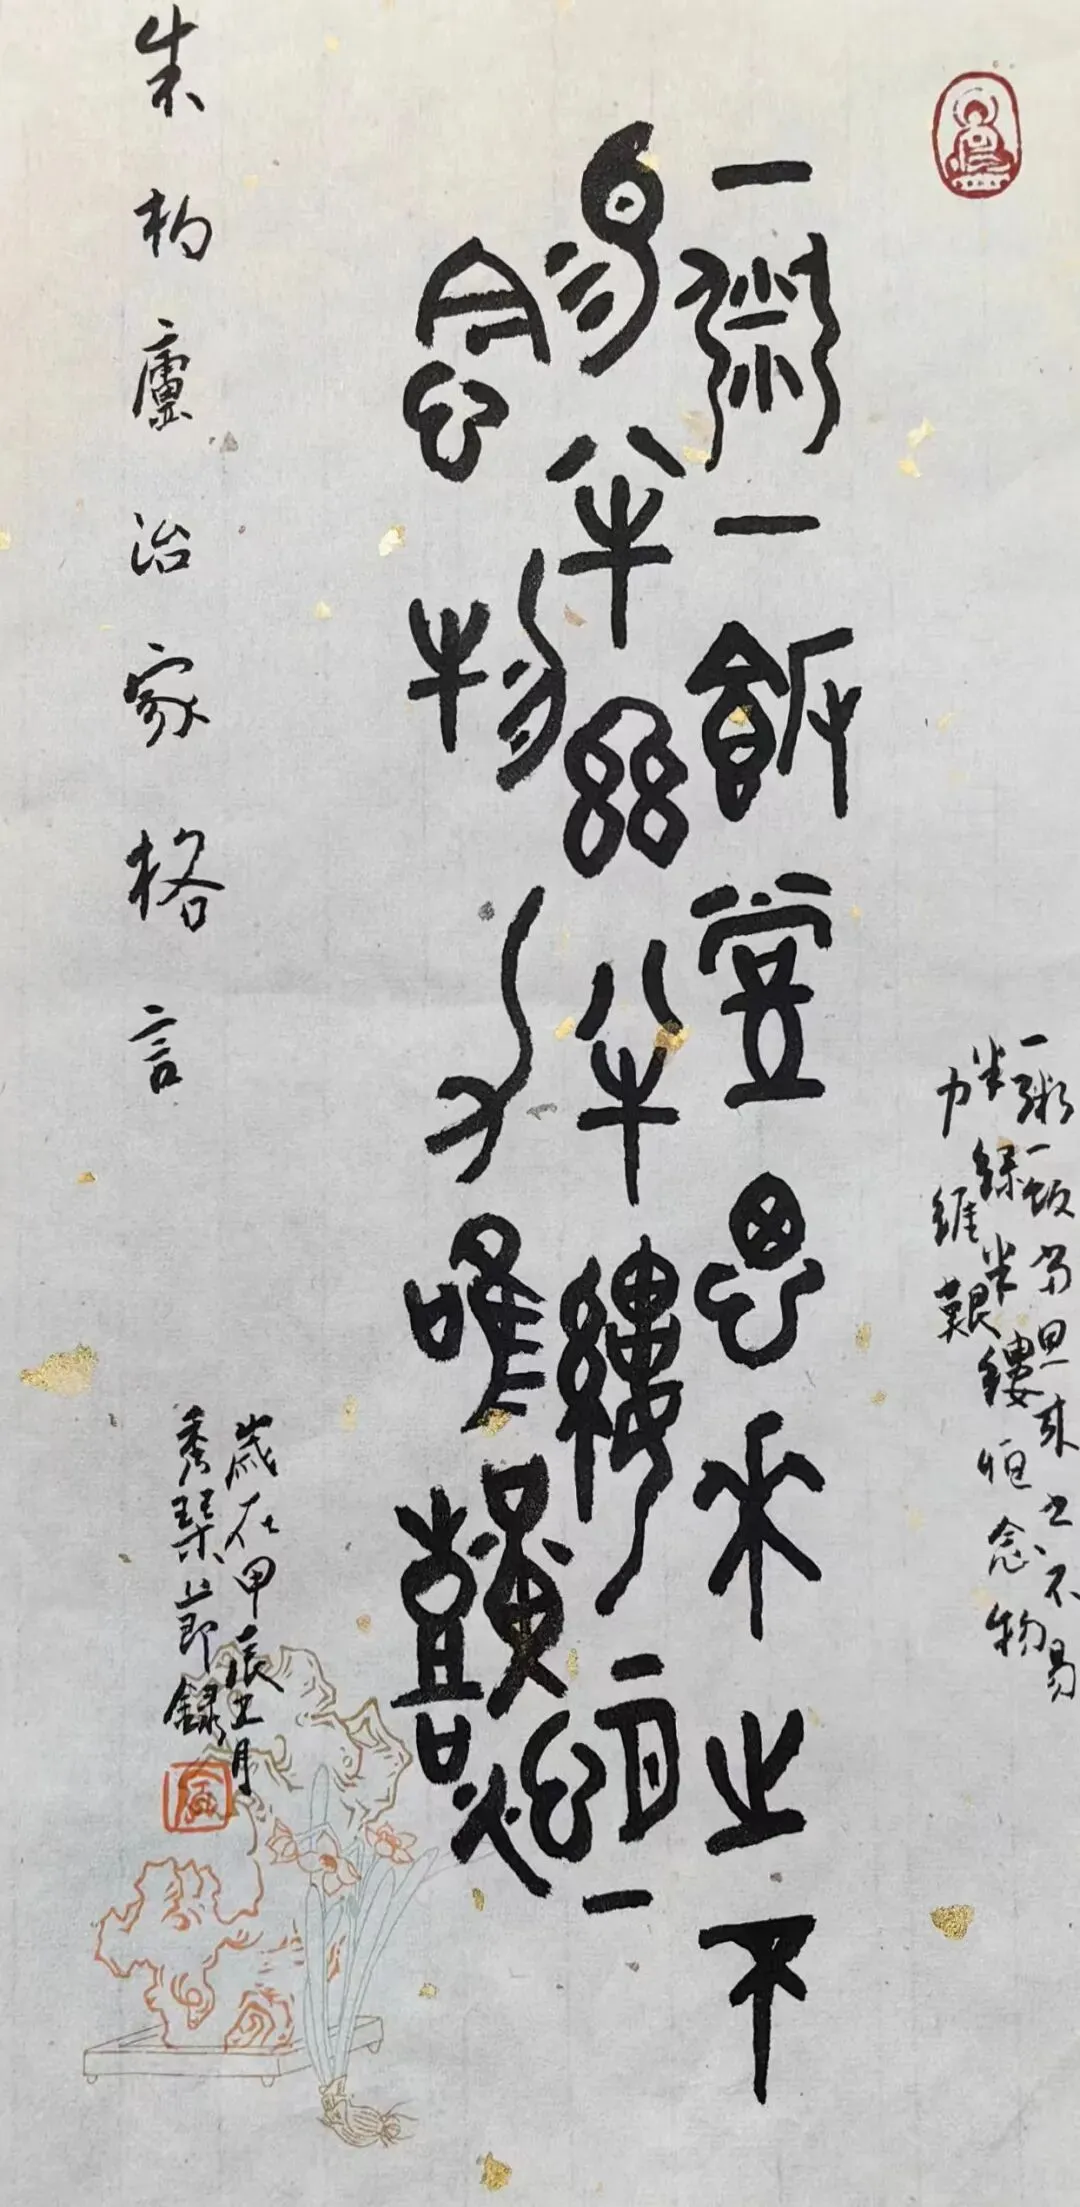 一粥一飯當思來之不易
半絲半縷恒念物
力維艱
一粥一飯當思來之不
易半絲半縷恒
念物力唯艱
朱柏廬治家格言
歲在甲辰五月
秀琹節錄